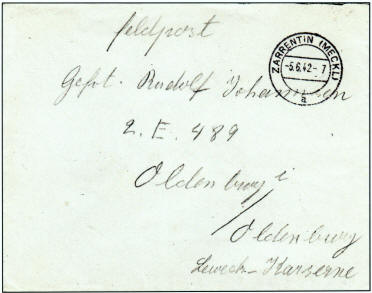 feldpost
ZARRENTIN (MECKL)
-5.6.42-7
a
Gefrt. Rudolf Johannsen
2. E. 489
Oldenburg i
/ Oldenburg
Kaserne